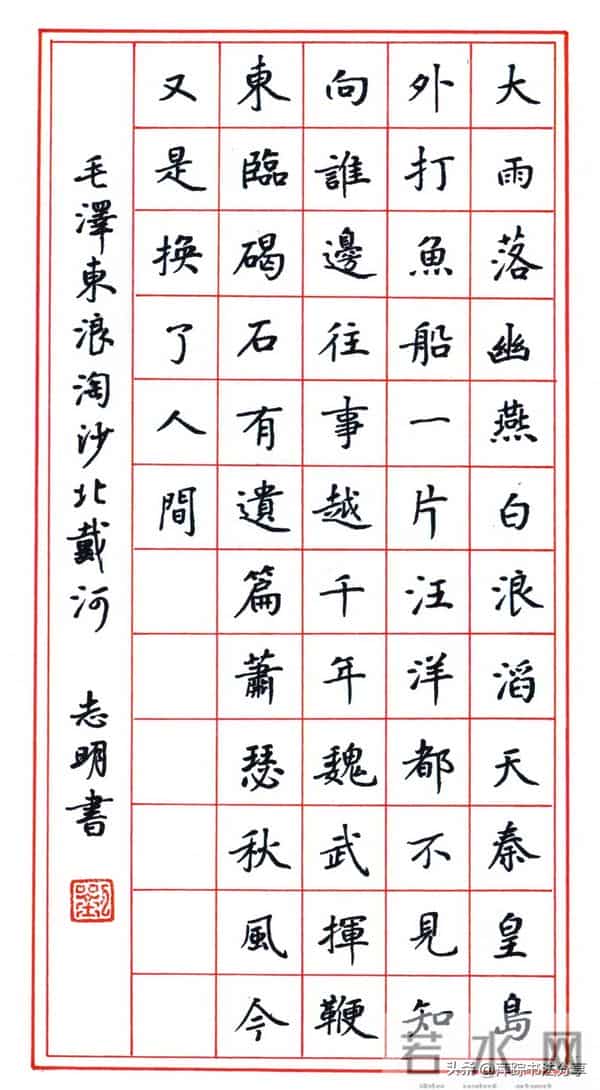 大雨落幽燕白浪滔天秦皇島
外打魚船一片汪洋都不見知
向誰邊往事越千年魏武揮鞭
東臨碣石有遺篇蕭瑟秋風今
又是換了人間
毛澤東浪淘沙北戴河 志明書
劉
若水网
头条@萍踪书法分享